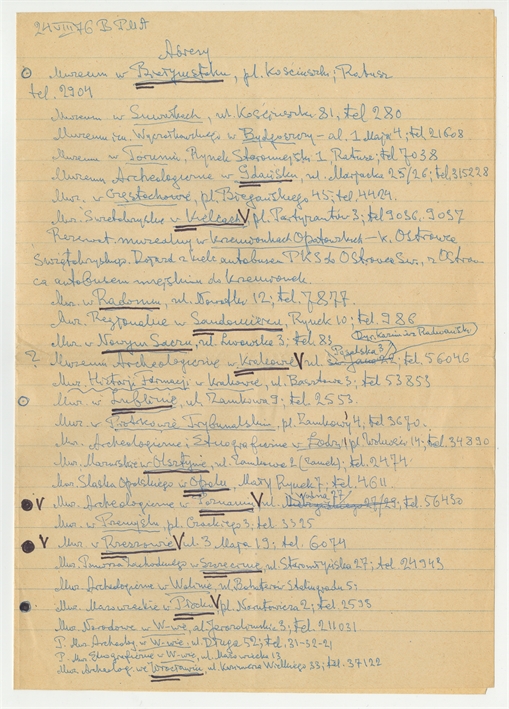 24 VIII 76 B PMA
Adresy
Muzeum w Białymstoku, pl. Kościuszki, Ratusz
tel. 2904
Muzeum w Suwałkach, ul. Kościuszki 81, tel 280
Muzeum im Wyczółkowskiego w Bydgoszczy – al. 1 Maja 4; tel 21608
Muzeum w Toruniu, Rynek Staromiejski 1, Ratusz; tel 7038
Muzeum Archeologiczne w Gdańsku, ul. Mariacka 25/26; tel. 315228
Muz. w Częstochowie, pl. Biegańskiego 45; tel. 4424.
Muz. Świętokrzyskie w Kielcach V pl. Partyzantów 3; tel 9036, 9037
Rezerwat muzealny w Krzemionkach Opatowskich – k. Ostrowca
Świętokrzyskiego. Dojazd z Kielc autobusem PKS do Ostrowca Św., z Ostrow
ca autobusem miejskim do Krzemionek.
Muz. w Radomiu, ul. Nowotki 12; tel. 7877.
Muz. Regionalne w Sandomierzu Rynek 10; tel. 986
Muz. w Nowym Sączu, ul. Lwowska 3; tel. 83
Dyr. Kazimierz Radwański
? Muzeum Archeologiczne w Krakowie V ul. Poselska 3 tel 56046
Muz. Historji w Krakowie, ul. 3; tel 53853
Muz. w Lublinie, ul. Zamkowa 9; tel. 2553.
Muz. w Piotrkowie Trybunalskim, pl. Zamkowy 4, tel. 3670.
Muz. Archeologiczne i Etnograficzne w Łodzi pl. Wolności 14; tel. 34890
Muz. Mazurskie w Olsztynie, ul. Zamkowa 2 (zamek); tel. 2474
Muz. Śląska Opolskiego w Opolu, Mały Rynek 7; tel. 4611
V Muz. Archeologiczne w Poznaniu V ul. Wodna 27 tel. 56430
Muz. w Przemyślu, pl. Czackiego 3; tel 3325
V Muz. w Rzeszowie V ul. 3 Maja 19; tel. 6074
Muz. Pomorza Zachodniego w Szczecinie, ul. Staromłyńska 27; tel. 24943
Muz. Archeologiczne w Wolinie, ul. Bohaterów Stalingradu 5;
Muz. Mazowieckie w Płocku V pl. Narutowicza 2; tel. 2598
Muz. Narodowe w W-wie, al. Jerozolimskie 3; tel. 211031
P. Muz. Archeolog. w W-wie. ul Długa 52; tel. 31-32-21
P. Muz. Etnograficzne w W-wie, ul. Mazowiecka 13
Muz. Archeolog. we Wrocławiu, ul. Kazimierza Wielkiego 33; tel. 37122